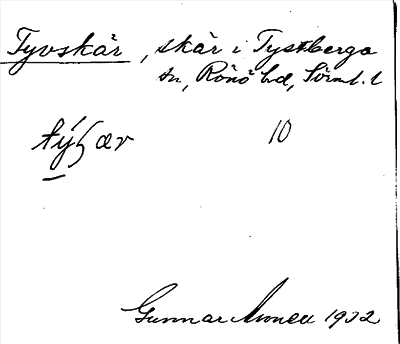 Tyvskär, skär i Tystberga
sn, Rönö hd, Sörml. l
10
Gunnar 1932